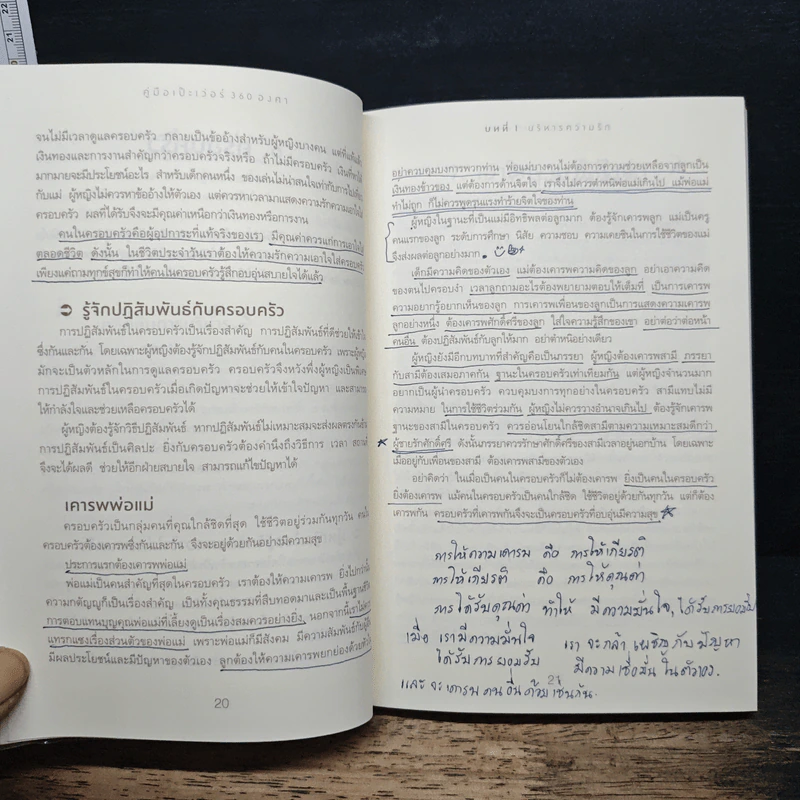 คู่มือเป๊ะเว่อร์ 360 องศา
จนไม่มีเวลาดูแลครอบครัว กลายเป็นข้ออ้างสำหรับผู้หญิงบางคน แต่ที่แท้แล้ว
เงินทองและการงานสำคัญกว่าครอบครัวจริงหรือ ถ้าไม่มีครอบครัว เงินที่หา
มากมายจะมีประโยชน์อะไร สำหรับเด็กคนหนึ่ง ของเล่นไม่น่าสนใจเท่ากับการได้
กับแม่ ผู้หญิงไม่ควรหาข้ออ้างให้ตัวเอง แต่ควรหาเวลามาแสดงความรักความเอาใจใส่
ครอบครัว ผลที่ได้รับจึงจะมีคุณค่าเหนือกว่าเงินทองหรือการงาน
คนในครอบครัวคือผู้อุปการะที่แท้จริงของเรา มีคุณค่าควรแก่การเอาใจใส่
ตลอดชีวิต ดังนั้น ในชีวิตประจำวันเราต้องให้ความรักความเอาใจใส่ครอบครัว
เพียงแค่ถามทุกข์สุขก็ทำให้คนในครอบครัวรู้สึกอบอุ่นสบายใจได้แล้ว
รู้จักปฏิสัมพันธ์กับครอบครัว
การปฏิสัมพันธ์ในครอบครัวเป็นเรื่องสำคัญ การปฏิสัมพันธ์ที่ดีช่วยให้เข้าใจ
ซึ่งกันและกัน โดยเฉพาะผู้หญิงต้องรู้จักปฏิสัมพันธ์กับคนในครอบครัว เพราะผู้หญิง
มักจะเป็นตัวหลักในการดูแลครอบครัว ครอบครัวจึงหวังพึ่งผู้หญิงเป็นพิเศษ
การปฏิสัมพันธ์ในครอบครัวเมื่อเกิดปัญหาจะช่วยให้เข้าใจปัญหา และสามารถ
ให้กำลังใจและช่วยเหลือครอบครัวได้
ผู้หญิงต้องรู้จักวิธีปฏิสัมพันธ์ หากปฏิสัมพันธ์ไม่เหมาะสมจะส่งผลตรงกันข้าม
การปฏิสัมพันธ์เป็นศิลปะ ยิ่งกับครอบครัวต้องคำนึงถึงวิธีการ เวลา สถานที่
จึงจะได้ผลดี ช่วยให้อีกฝ่ายสบายใจ สามารถแก้ไขปัญหาได้
เคารพพ่อแม่
ครอบครัวเป็นกลุ่มคนที่คุณใกล้ชิดที่สุด ใช้ชีวิตอยู่ร่วมกันทุกวัน คนใน
ครอบครัวต้องเคารพซึ่งกันและกัน จึงจะอยู่ด้วยกันอย่างมีความสุข
ประการแรกต้องเคารพพ่อแม่
พ่อแม่เป็นคนสำคัญที่สุดในครอบครัว เราต้องให้ความเคารพ ยิ่งไปกว่านั้น
ความกตัญญูก็เป็นเรื่องสำคัญ เป็นทั้งคุณธรรมที่สืบทอดมาและเป็นพื้นฐานชีวิต
การตอบแทนบุญคุณพ่อแม่ที่เลี้ยงดูเป็นเรื่องสมควรอย่างยิ่ง นอกจากนี้เราไม่ควร
แทรกแซงเรื่องส่วนตัวของพ่อแม่ เพราะพ่อแม่ก็มีสังคม มีความสัมพันธ์กับผู้อื่น
มีผลประโยชน์และมีปัญหาของตัวเอง ลูกต้องให้ความเคารพยกย่องด้วยหัวใจ
20
บทที่ 1 บริหารความรัก
อย่าควบคุมบงการพวกท่าน พ่อแม่บางคนไม่ต้องการความช่วยเหลือจากลูกเป็น
เงินทองข้าวของ แต่ต้องการด้านจิตใจ เราจึงไม่ควรตำหนิพ่อแม่เกินไป แม้พ่อแม่
ทำไม่ถูก ก็ไม่ควรพูดรุนแรงทำร้ายจิตใจของท่าน
ผู้หญิงในฐานะที่เป็นแม่มีอิทธิพลต่อลูกมาก ต้องรู้จักเคารพลูก แม่เป็นครู
คนแรกของลูก ระดับการศึกษา นิสัย ความชอบ ความเคยชินในการใช้ชีวิตของแม่
จึงส่งผลต่อลูกอย่างมาก
เด็กมีความคิดของตัวเอง แม่ต้องเคารพความคิดของลูก อย่าเอาความคิด
ของตนไปครอบงำ เวลาลูกถามอะไรต้องพยายามตอบให้เต็มที่ เป็นการเคารพ
ความอยากรู้อยากเห็นของลูก การเคารพเพื่อนของลูกเป็นการแสดงความเคารพ
ลูกอย่างหนึ่ง ต้องเคารพศักดิ์ศรีของลูก ใส่ใจความรู้สึกของเขา อย่าต่อว่าต่อหน้า
คนอื่น ต้องปฏิสัมพันธ์กับลูกให้มาก อย่าตำหนิอย่างเดียว
ผู้หญิงยังมีอีกบทบาทที่สำคัญคือเป็นภรรยา ผู้หญิงต้องเคารพสามี ภรรยา
กับสามีต้องเสมอภาคกัน ฐานะในครอบครัวเท่าเทียมกัน แต่ผู้หญิงจำนวนมาก
อยากเป็นผู้นำครอบครัว ควบคุมบงการทุกอย่างในครอบครัว สามีแทบไม่มี
ความหมาย ในการใช้ชีวิตร่วมกัน ผู้หญิงไม่ควรวางอำนาจเกินไป ต้องรู้จักเคารพ
ฐานะของสามีในครอบครัว ควรอ่อนโยนใกล้ชิดสามีตามความเหมาะสมดีกว่า
ผู้ชายรักศักดิ์ศรี ดังนั้นภรรยาควรรักษาศักดิ์ศรีของสามีเวลาอยู่นอกบ้าน โดยเฉพาะ
เมื่ออยู่กับเพื่อนของสามี ต้องเคารพสามีของตัวเอง
อย่าคิดว่า ในเมื่อเป็นคนในครอบครัวก็ไม่ต้องเคารพ ยิ่งเป็นคนในครอบครัว
ยิ่งต้องเคารพ แม้คนในครอบครัวเป็นคนใกล้ชิด ใช้ชีวิตอยู่ด้วยกันทุกวัน แต่ก็ต้อง
เคารพกัน ครอบครัวที่เคารพกันจึงจะเป็นครอบครัวที่อบอุ่นมีความสุข
การให้ความเคารพ คือ การให้เกียรติ
การให้เกียรติ คือ การให้คุณค่า
การได้รับคุณค่า ทำให้ มีความมั่นใจ, ได้รับการยอมรับ
เมื่อ เรามีความมั่นใจ เรา จะกล้า เผชิญ กับ ปัญหา
ได้รับการยอมรับ มีความเชื่อมั่น ในตัวเอง.
และจะเคารพคนอื่นด้วยเช่นกัน.
21